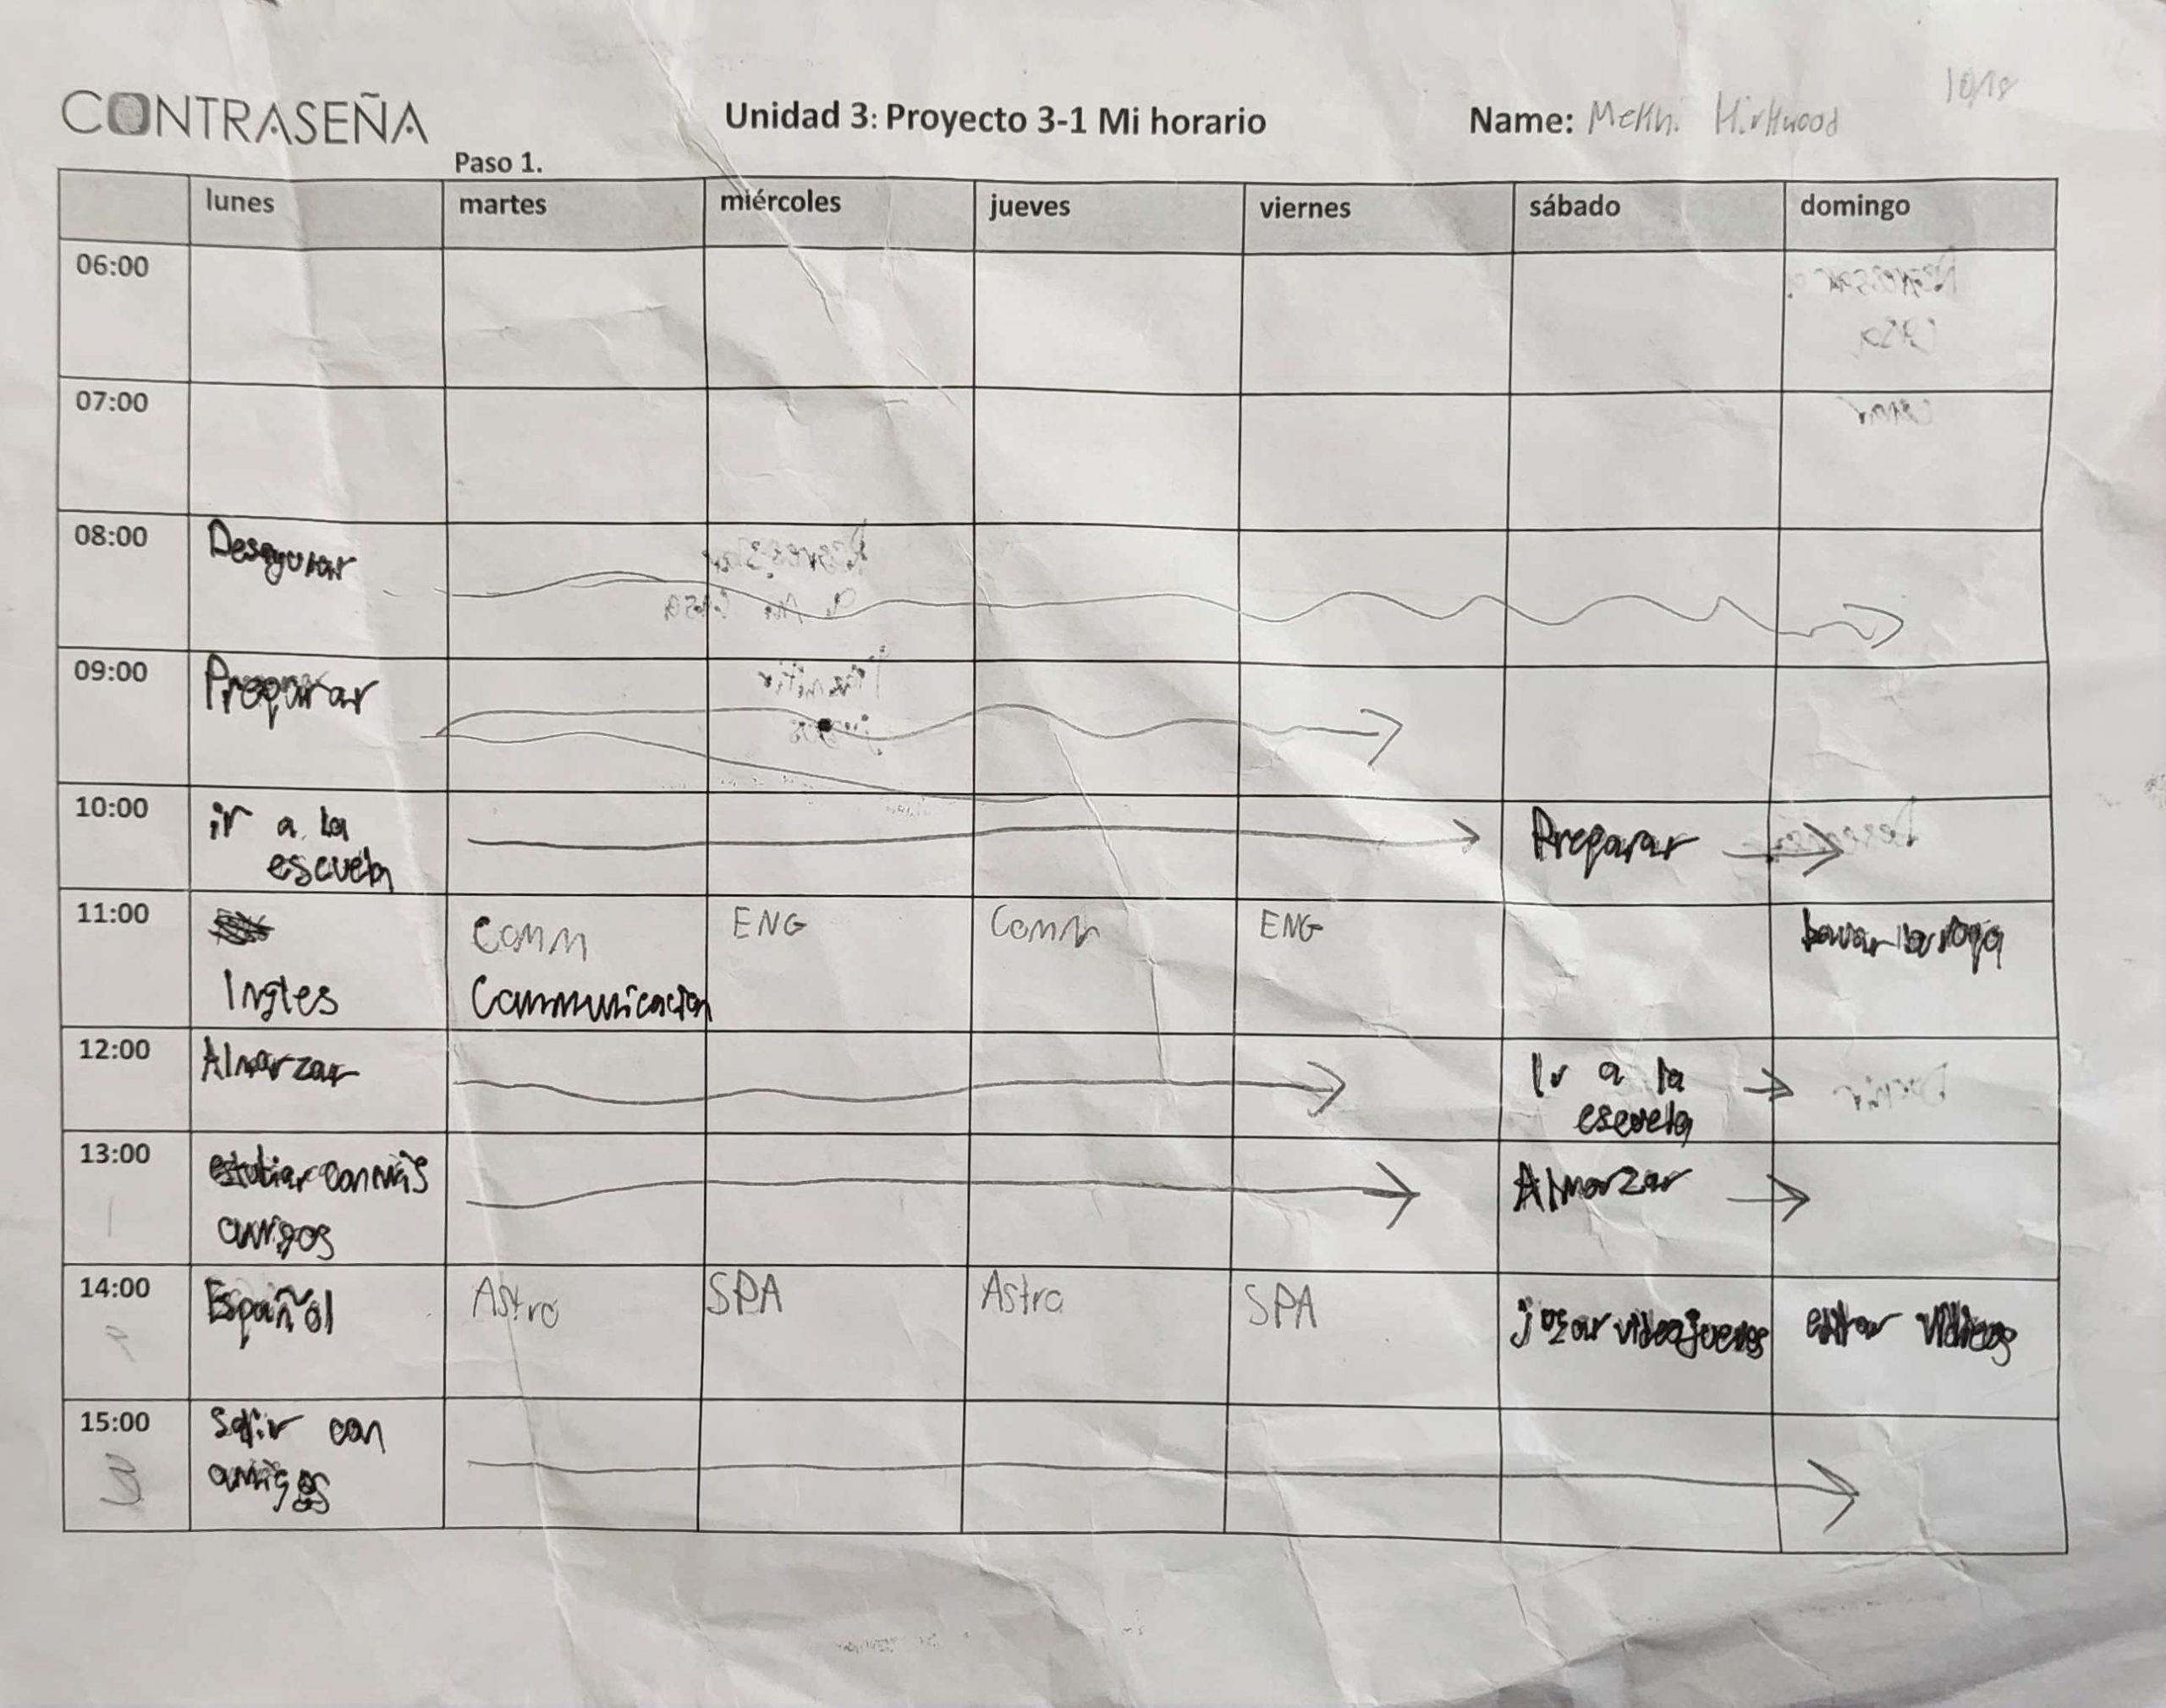 CONTRASEÑA
Unidad 3: Proyecto 3-1 Mi horario
Name:
10/18
Paso 1.
lunes martes miércoles jueves viernes sábado domingo
06:00
07:00
08:00 Desayunar
09:00 Preparar
10:00 ir a la Preparar
escuela
11:00 Comm ENG Comm ENG lavar la ropa
Ingles Communicacion
12:00 Almorzar Ir a la
escuela
13:00 estudiar con mis Almorzar
amigos
14:00 Español Astro SPA Astro SPA jogar videojuegos
15:00 Salir con
amigos